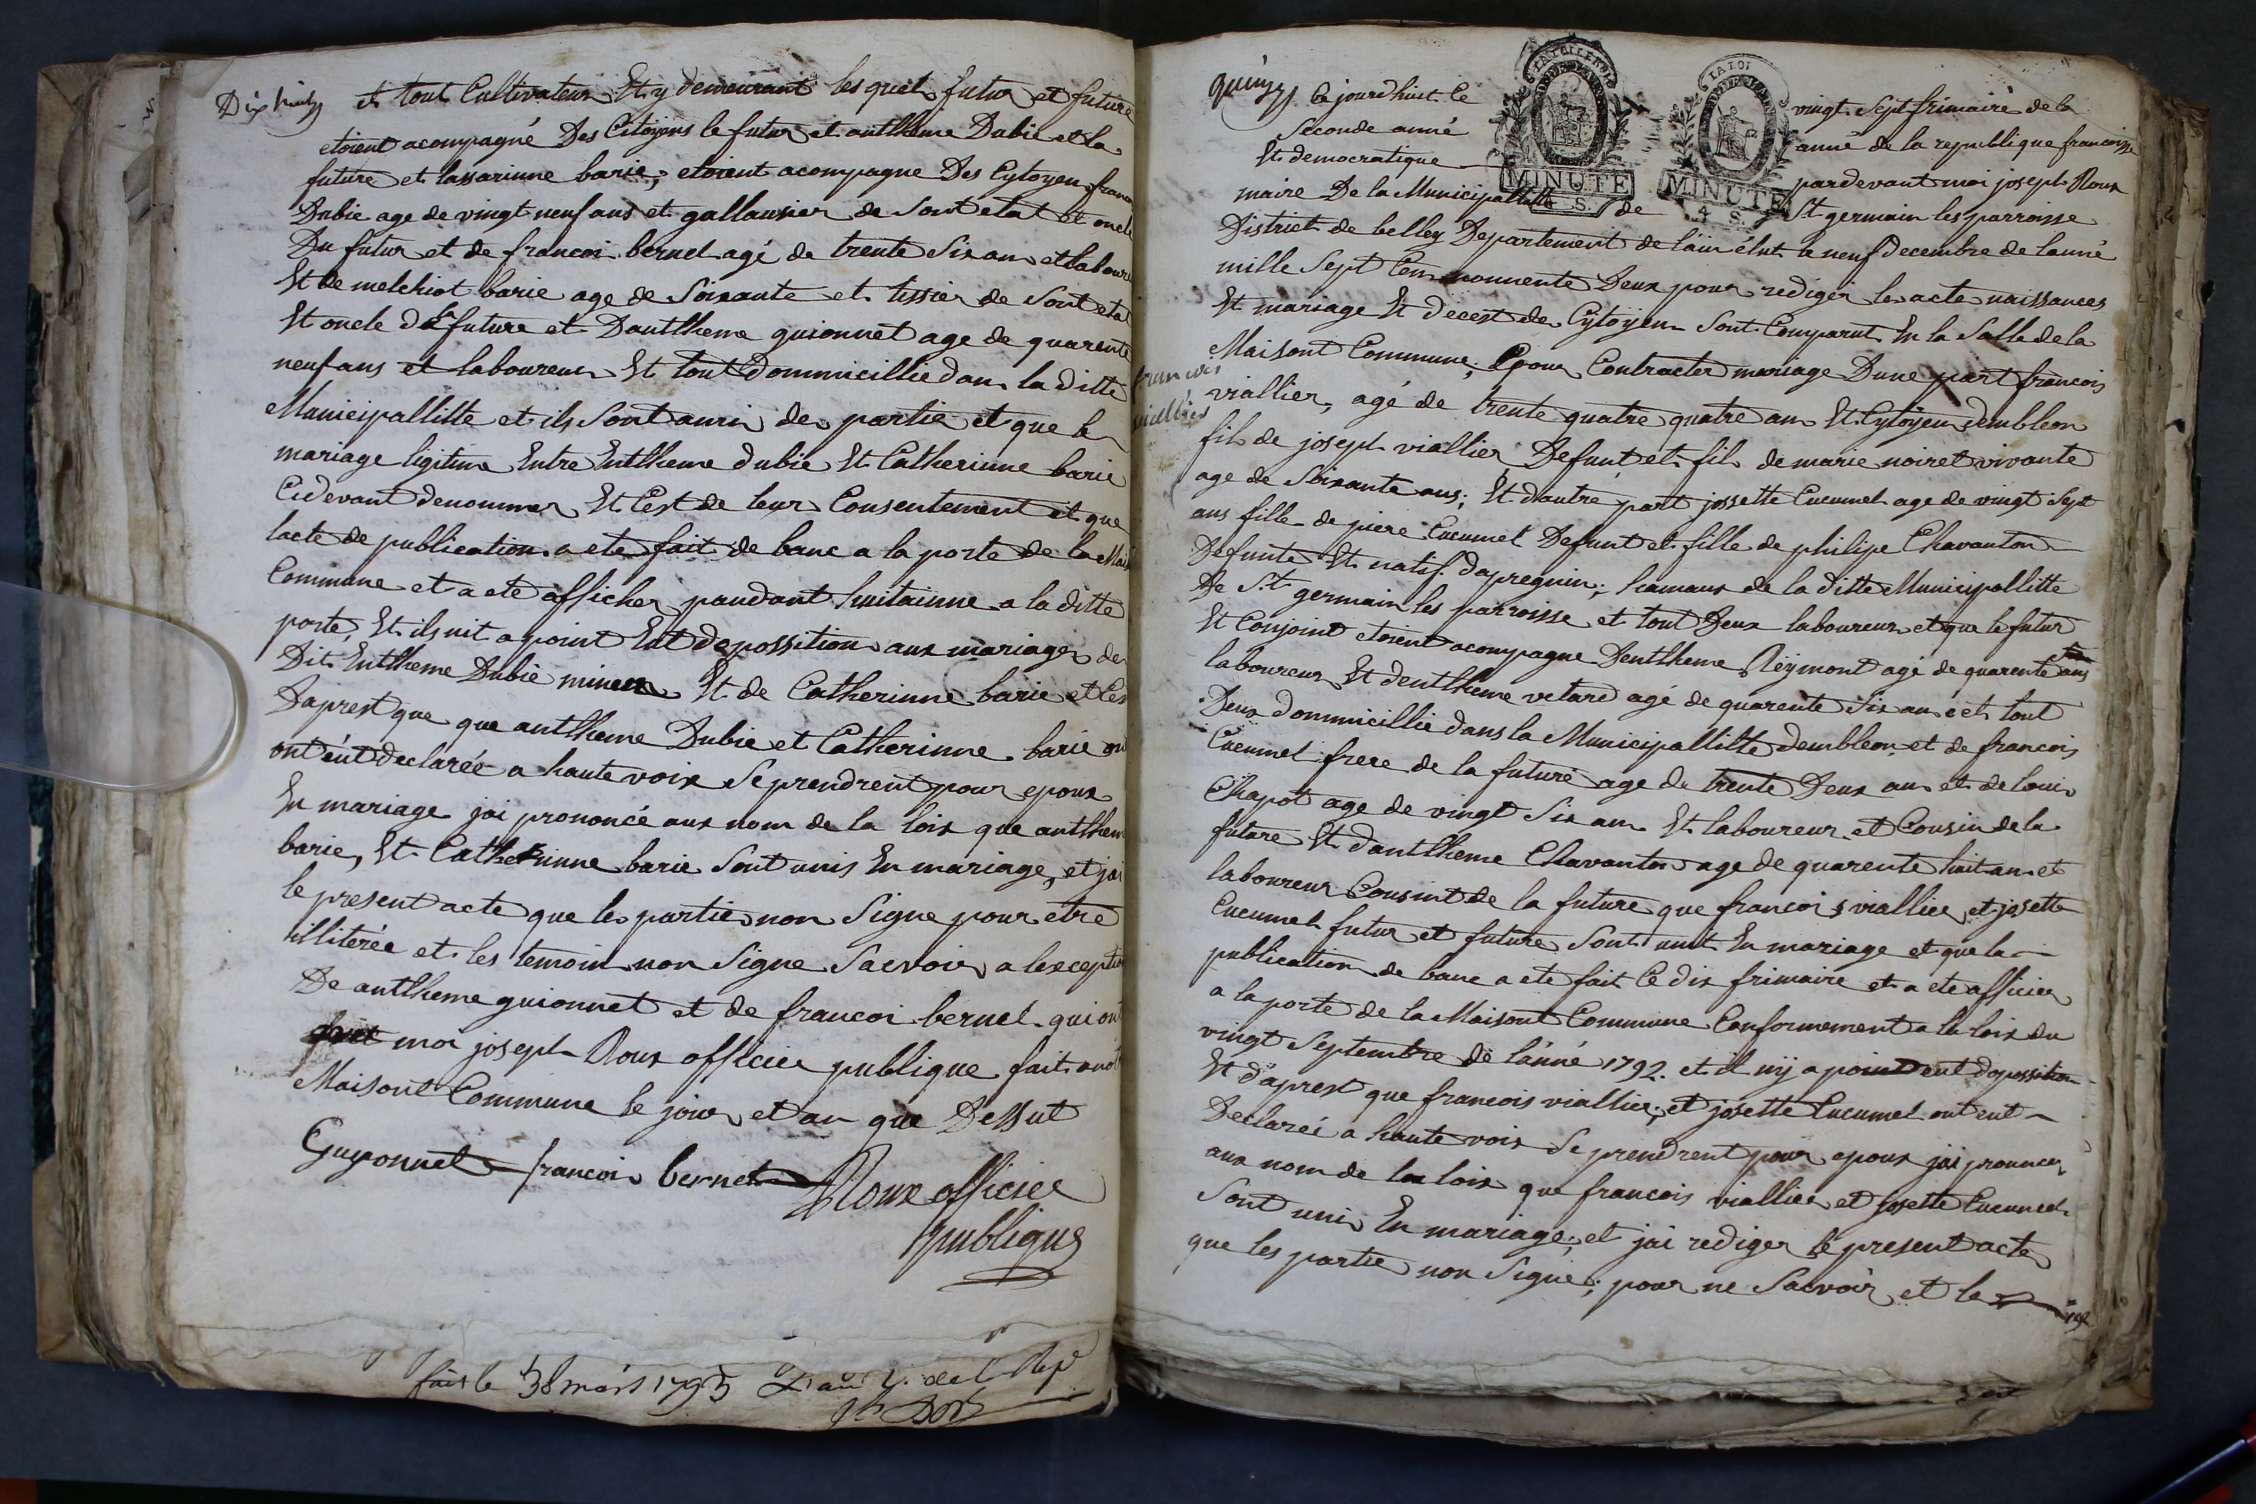 Dix huitz
et tout Cultivateur Et y demeurant lesquel futur et future
etoient acompagné Des Citoyens le futur et antlheme Dubie et la
future et Cassarinne barie; etoient acompagne Des Cytoyen francoi
Dubie age de vingt neuf ans et gallausier de Sont etat et oncle
Du futur et de francoi bernel agé de trente Six an et laboureur
Et de melchiot barie age de Soixante et tissier de Sont etat
Et oncle de la future et Dantlheme guionnet age de quarente
neuf ans et laboureur Et tout Dommicillie dan la ditte
Municipallitte et ils Sont amis des partie et que le
mariage ligitime Entre Entlheme dubie Et Catherinne barie
Cidevant denommer Et Cest de leur Consentement et que
lacte de publication a ete fait de banc a la porte de la Mais
Commune et a ete afficher pandant huitainne a la ditte
porte, Et ils nit a point Eut dopossition aux mariages des
Dit Entlheme Dubie mineur Et de Catherinne barie et Ces
Daprest que que antlheme Dubie et Catherinne barie on
ont eut declarée a haute voix Se prendrent pour epoux
En mariage jai prononcée aux nom de la loix que antlhem
barie, Et Catherinne barie Sont unis En mariage, et jai
le present acte que les partie non Signe pour etre
illiterée et les temoin non Signe Sacvoir a lexception
De antlheme guionnet et de francoi bernel qui ont
moi joseph Roux officier publique fait en notre
Maisont Commune le jour et an que Dessut
Guyonnet francois bernet
Roux officier
publique
fait le 38 mars 1793 L'an 2. de la Rep
quinz
Ce jourdhuit le vingt Sept frimaire de la
Seconde anné anné de la republique francoisse
Et democratique pardevant moi joseph Roux
maire De la Municipallitte de St germain les parroisse
District de belley Departement de lain élut le neuf Decembre de lanné
mille Sept Cen nonnente Deux pour rediger les acte naissances
Et mariage Et decest des Cytoyen Sont Comparut En la Salle de la
Maisont Commune, Pour Contracter mariage Dune part francois
francois
viallier
viallier, agé de trente quatre quatre an Et Cytoyen dembleon
fils de joseph viallier Defunt et fils de marie noiret vivante
age de Soixante ans; Et dautre part jossette Cucumel age de vingt Sept
ans fille de piere Cucumel Defunt et fille de philipe Chavanton
Defunte Et natif dapregnin; hamaux de la ditte Municipallitte
De St germain les parroisse et tout Deux laboureur et que le futur
Et Conjoint etoient acompagne Dentlheme Reymont agé de quarente ans
laboureur Et dentlheme vetard agé de quarente Six an et tout
Deux Dommicillie dans la Municipallitte dembleon, et de francois
Cucumel frere de la future age de trente Deux an et de louis
Chapot age de vingt Six an Et laboureur et Cousin de la
future Et dantlheme Chavanton age de quarente huit an et
laboureur Cousint de la future que francois viallier et josette
Cucumel futur et future Sont unit En mariage et que la
publication de banc a ete fait le dix frimaire et a ete afficier
a la porte de la Maisont Commune Conformement a la loix du
vingt Septembre de lanné 1792. et il nij a point eut dopossition
Et daprest que francois viallier, et josette Cucumel ont eut
Declarée a haute voix Se prendrent pour epoux jai prononcer
aux nom de la loix que francois viallier et josette Cucumel
Sont unis En mariage; et jai rediger le present acte
que les partie non Signe; pour ne Sacvoir et les
LA LOI
MINUTE
4 S.
LA LOI
MINUTE
4 S.